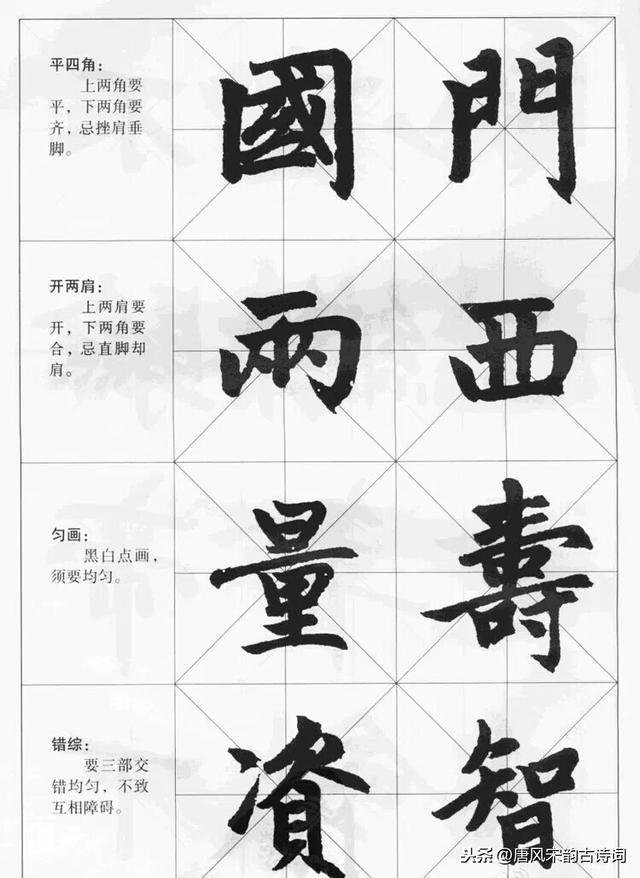 平四角：
上两角要
平，下两角要
齐，忌挫肩垂
脚。
國 門
开两肩：
上两肩要
开，下两角要
合，忌直脚却
肩。
兩 西
匀画：
黑白点画，
须要均匀。
量 壽
错综：
要三部交
错均匀，不致
互相障碍。
資 智
头条@唐风宋韵古诗词